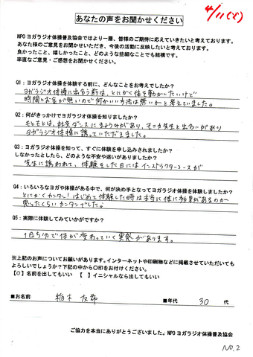 4/11(火)
あなたの声をお聞かせください
NPOヨガラジオ体操普及協会ではより一層、皆様のご期待に応えていきたいと考えております。
あなた様のご意見をお聞かせいただき、今後の活動に反映したいと考えております。
良かったこと、嬉しかったこと、どのような些細なことでも結構です。
率直なご意見・ご感想をお聞かせください。
Q1：ヨガラジオ体操を体験する前に、どんなことをお悩みでしたか？
ヨガラジオ体操に出会う前は、とにかく体を動かしたいけど
時間もお金が無いので何かいい方法は無いかと考えていました。
Q2：何がきっかけでヨガラジオ体操を知りましたか？
ヨガラジオ体操の
Q3：ヨガラジオ体操を知って、すぐに体操を申し込みされましたか？
しなかったとしたら、どのような不安や迷いがありましたか？
先生に誘われて、体験をした日にはインストラクターコースが
Q4：いろいろなヨガや体操がある中で、何が決め手となってヨガラジオ体操を体験しましたか？
とにかくカンタン！はじめて体験した時は本当に体に効果があるのか
Q5：実際に体験してみていかがですか？
1日5分で体が変わっていく実感があります。
※上記のお声についてお願いがあります。インターネットや印刷物などに掲載させていただいても
よろしいでしょうか？下記の中から○印をお付けください。
( O ) 名前を出してもいい ( ) イニシャルなら出してもいい
■お名前
■年代 30 代
ご協力を本当にありがとうございました。NPOヨガラジオ体操普及協会
NO.2